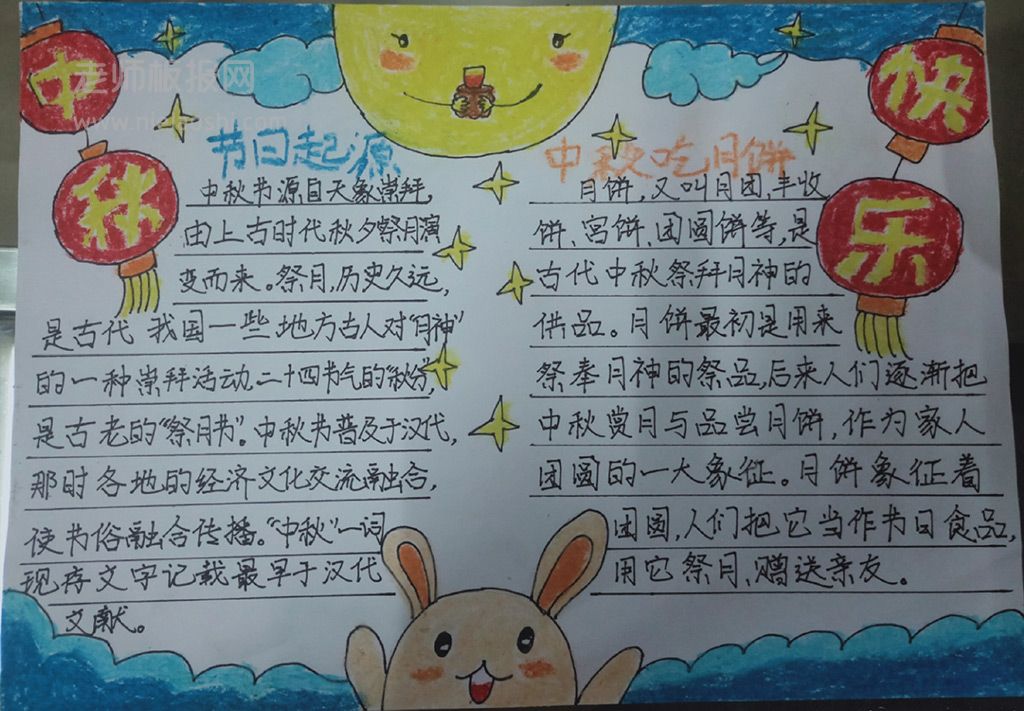 中秋
快乐
老师板报网
节日起源
中秋节源自天象崇拜,
由上古时代秋夕祭月演
变而来。祭月,历史久远,
是古代我国一些地方古人对“月神”
的一种崇拜活动,二十四节气的“秋分”,
是古老的“祭月节”。中秋节普及于汉代,
那时各地的经济文化交流融合,
使节俗融合传播。“中秋”一词
现存文字记载最早于汉代
文献。
中秋吃月饼
月饼,又叫月团、丰收
饼、宫饼、团圆饼等,是
古代中秋祭拜月神的
供品。月饼最初是用来
祭奉月神的祭品,后来人们逐渐把
中秋赏月与品尝月饼,作为家人
团圆的一大象征。月饼象征着
团圆,人们把它当作节日食品,
用它祭月、赠送亲友。